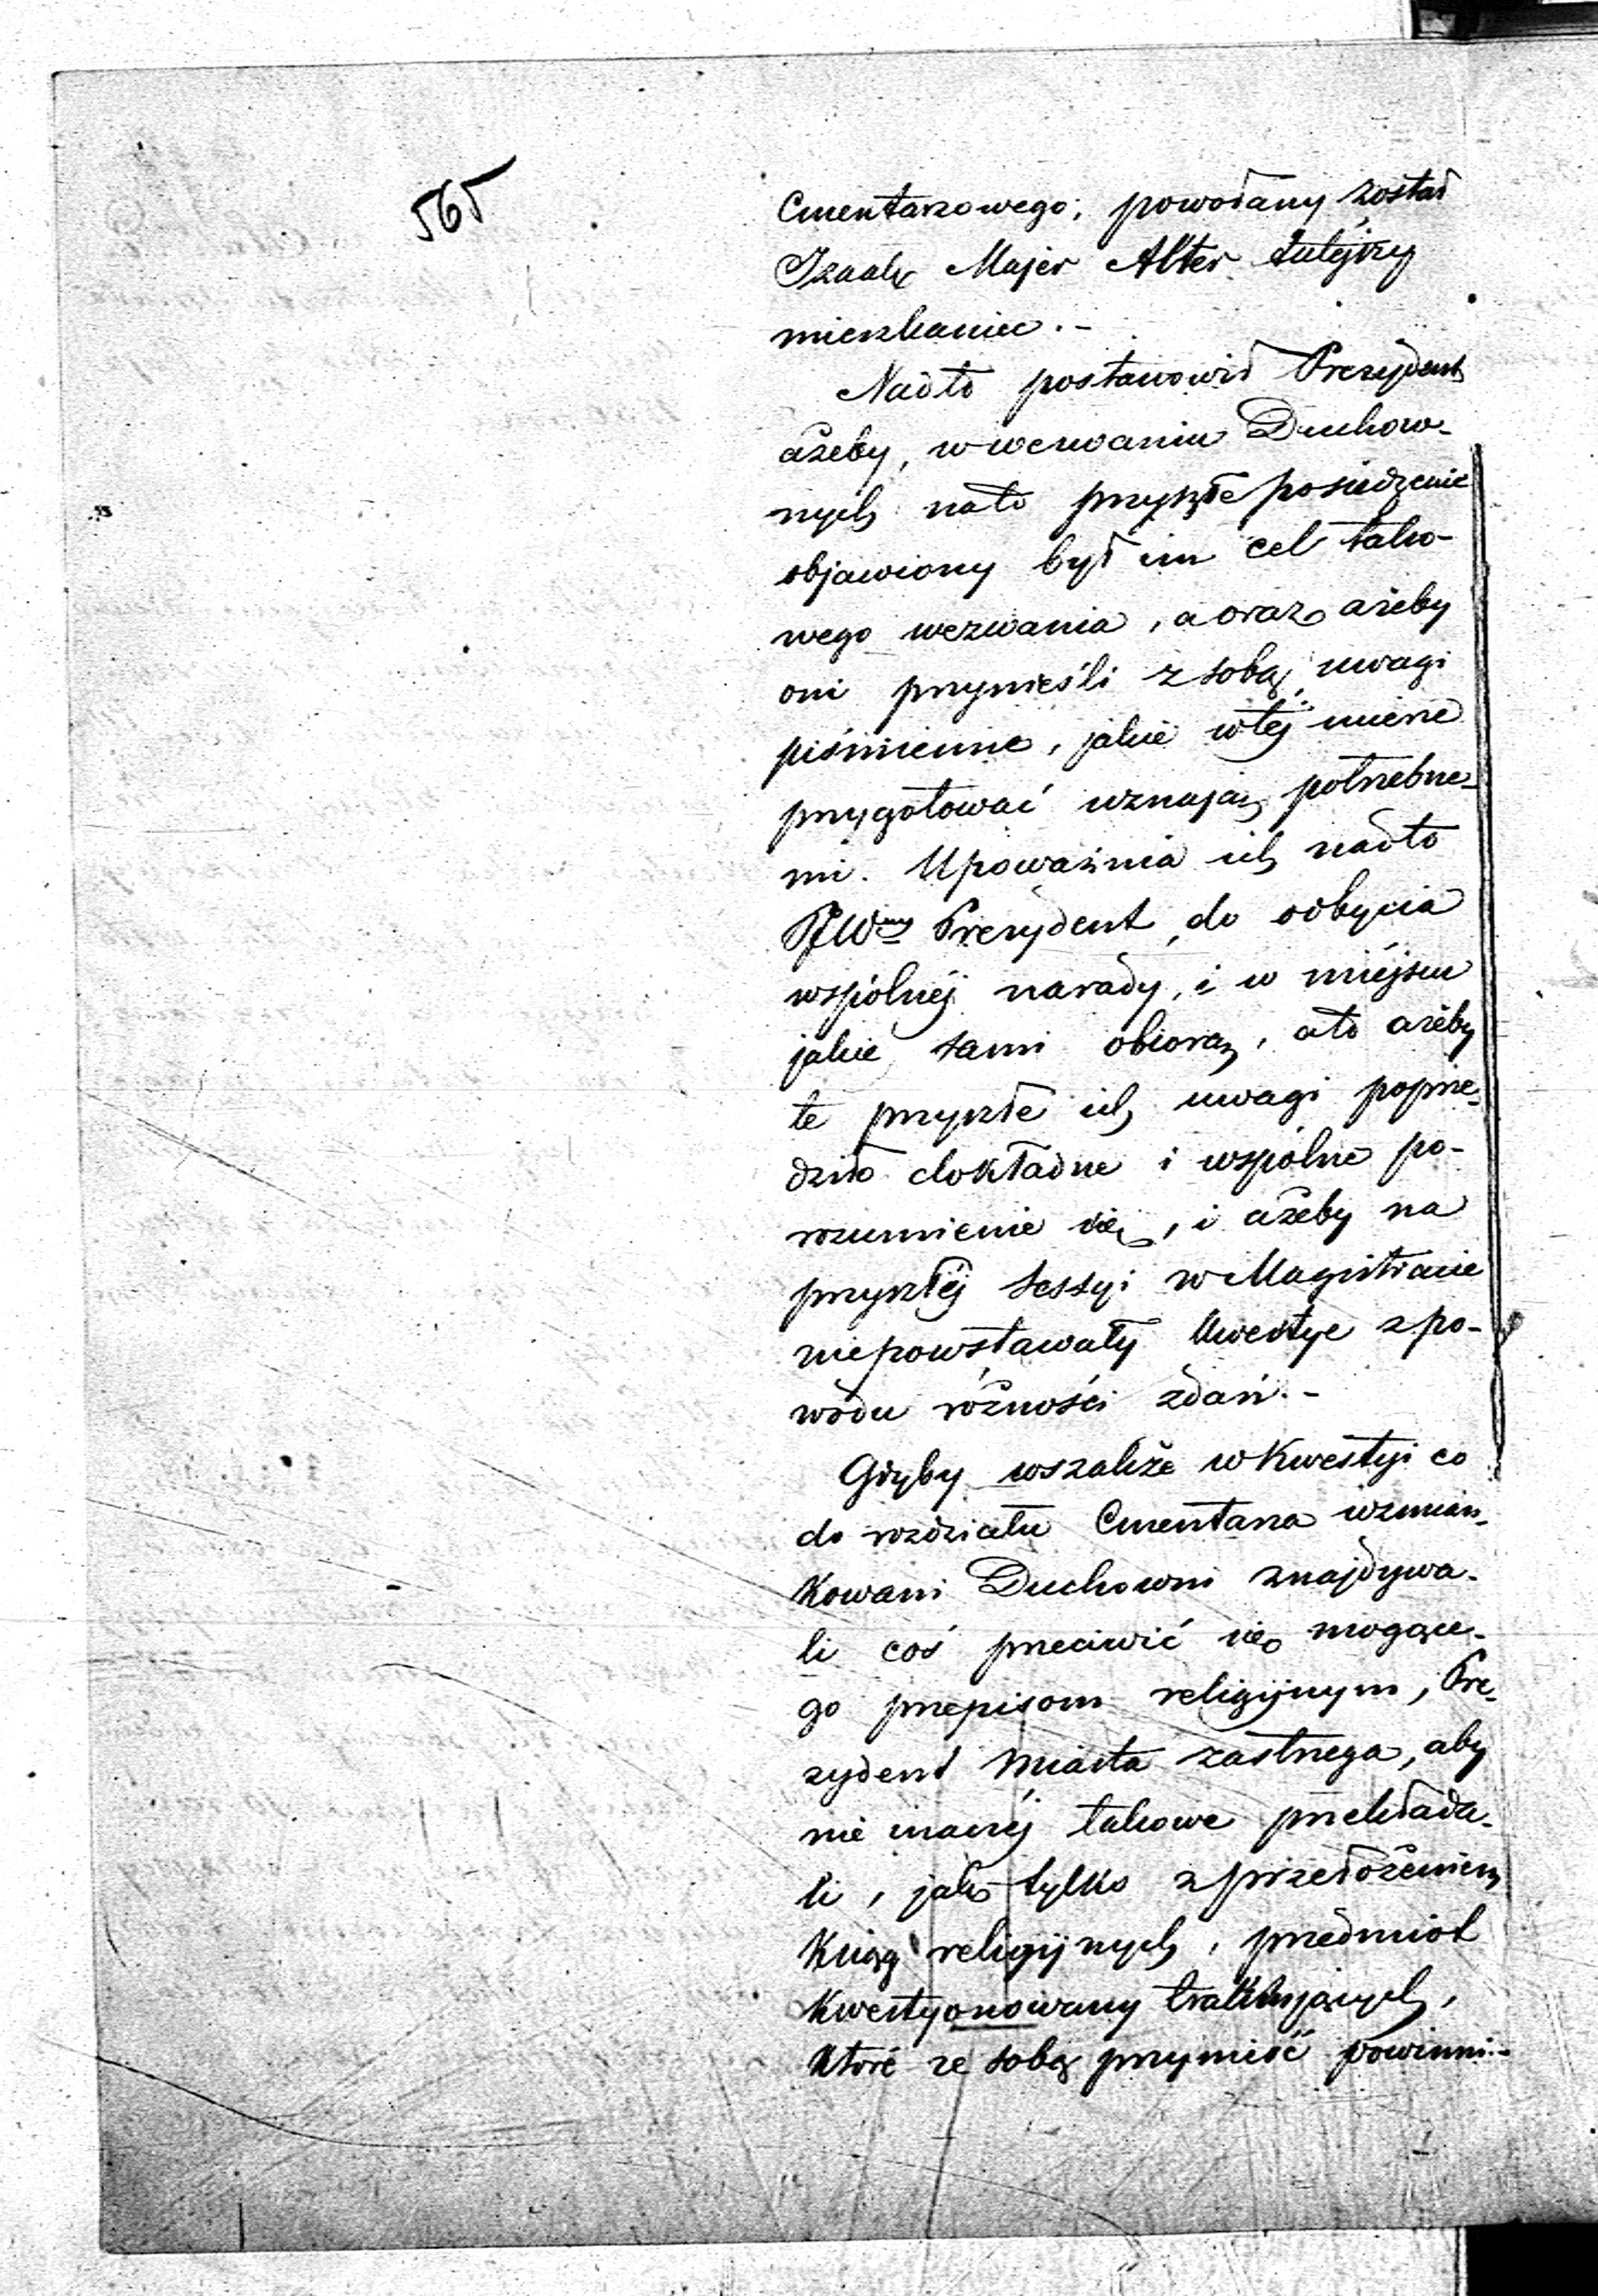 565
Cmentarzowego; powołany został
Izaak Majer Alter tutejszy
mieszkaniec.-
Nadto postanowił Prezydent
ażeby, w wezwaniu Duchow-
nych nato przyszłe posiedzenie
objawiony był im cel tako-
wego wezwania, a oraz ażeby
oni przynieśli z sobą uwagi
piśmienne, jakie w tej mierze
przygotować uznają potrzebne-
mi. Upoważnia ich nadto
JWny Prezydent, do odbycia
wspólnéj narady, i w miéjscu
jakie sami obiorą, a to ażeby
te przyszłe ich uwagi poprze-
dziło dokładne i wspólne po-
rozumienie się, i ażeby na
przyszłéj sessyi w Magistracie
niepowstawały kwestye z po-
wodu różności zdań.-
Gdyby wszakże w Kwestyi co
do rozdziału Cmentarza wzmian-
kowani Duchowni znajdywa-
li coś przeciwić się mogące-
go przepisom religijnym, Pre-
zydent Miasta zastrzega, aby
nie inaczéj takowe przekłada-
li, jak tylko z przedłożeniem
Ksiąg religijnych, przedmiot
Kwestyonowany traktujących,
które ze sobą przynieść powinni.-